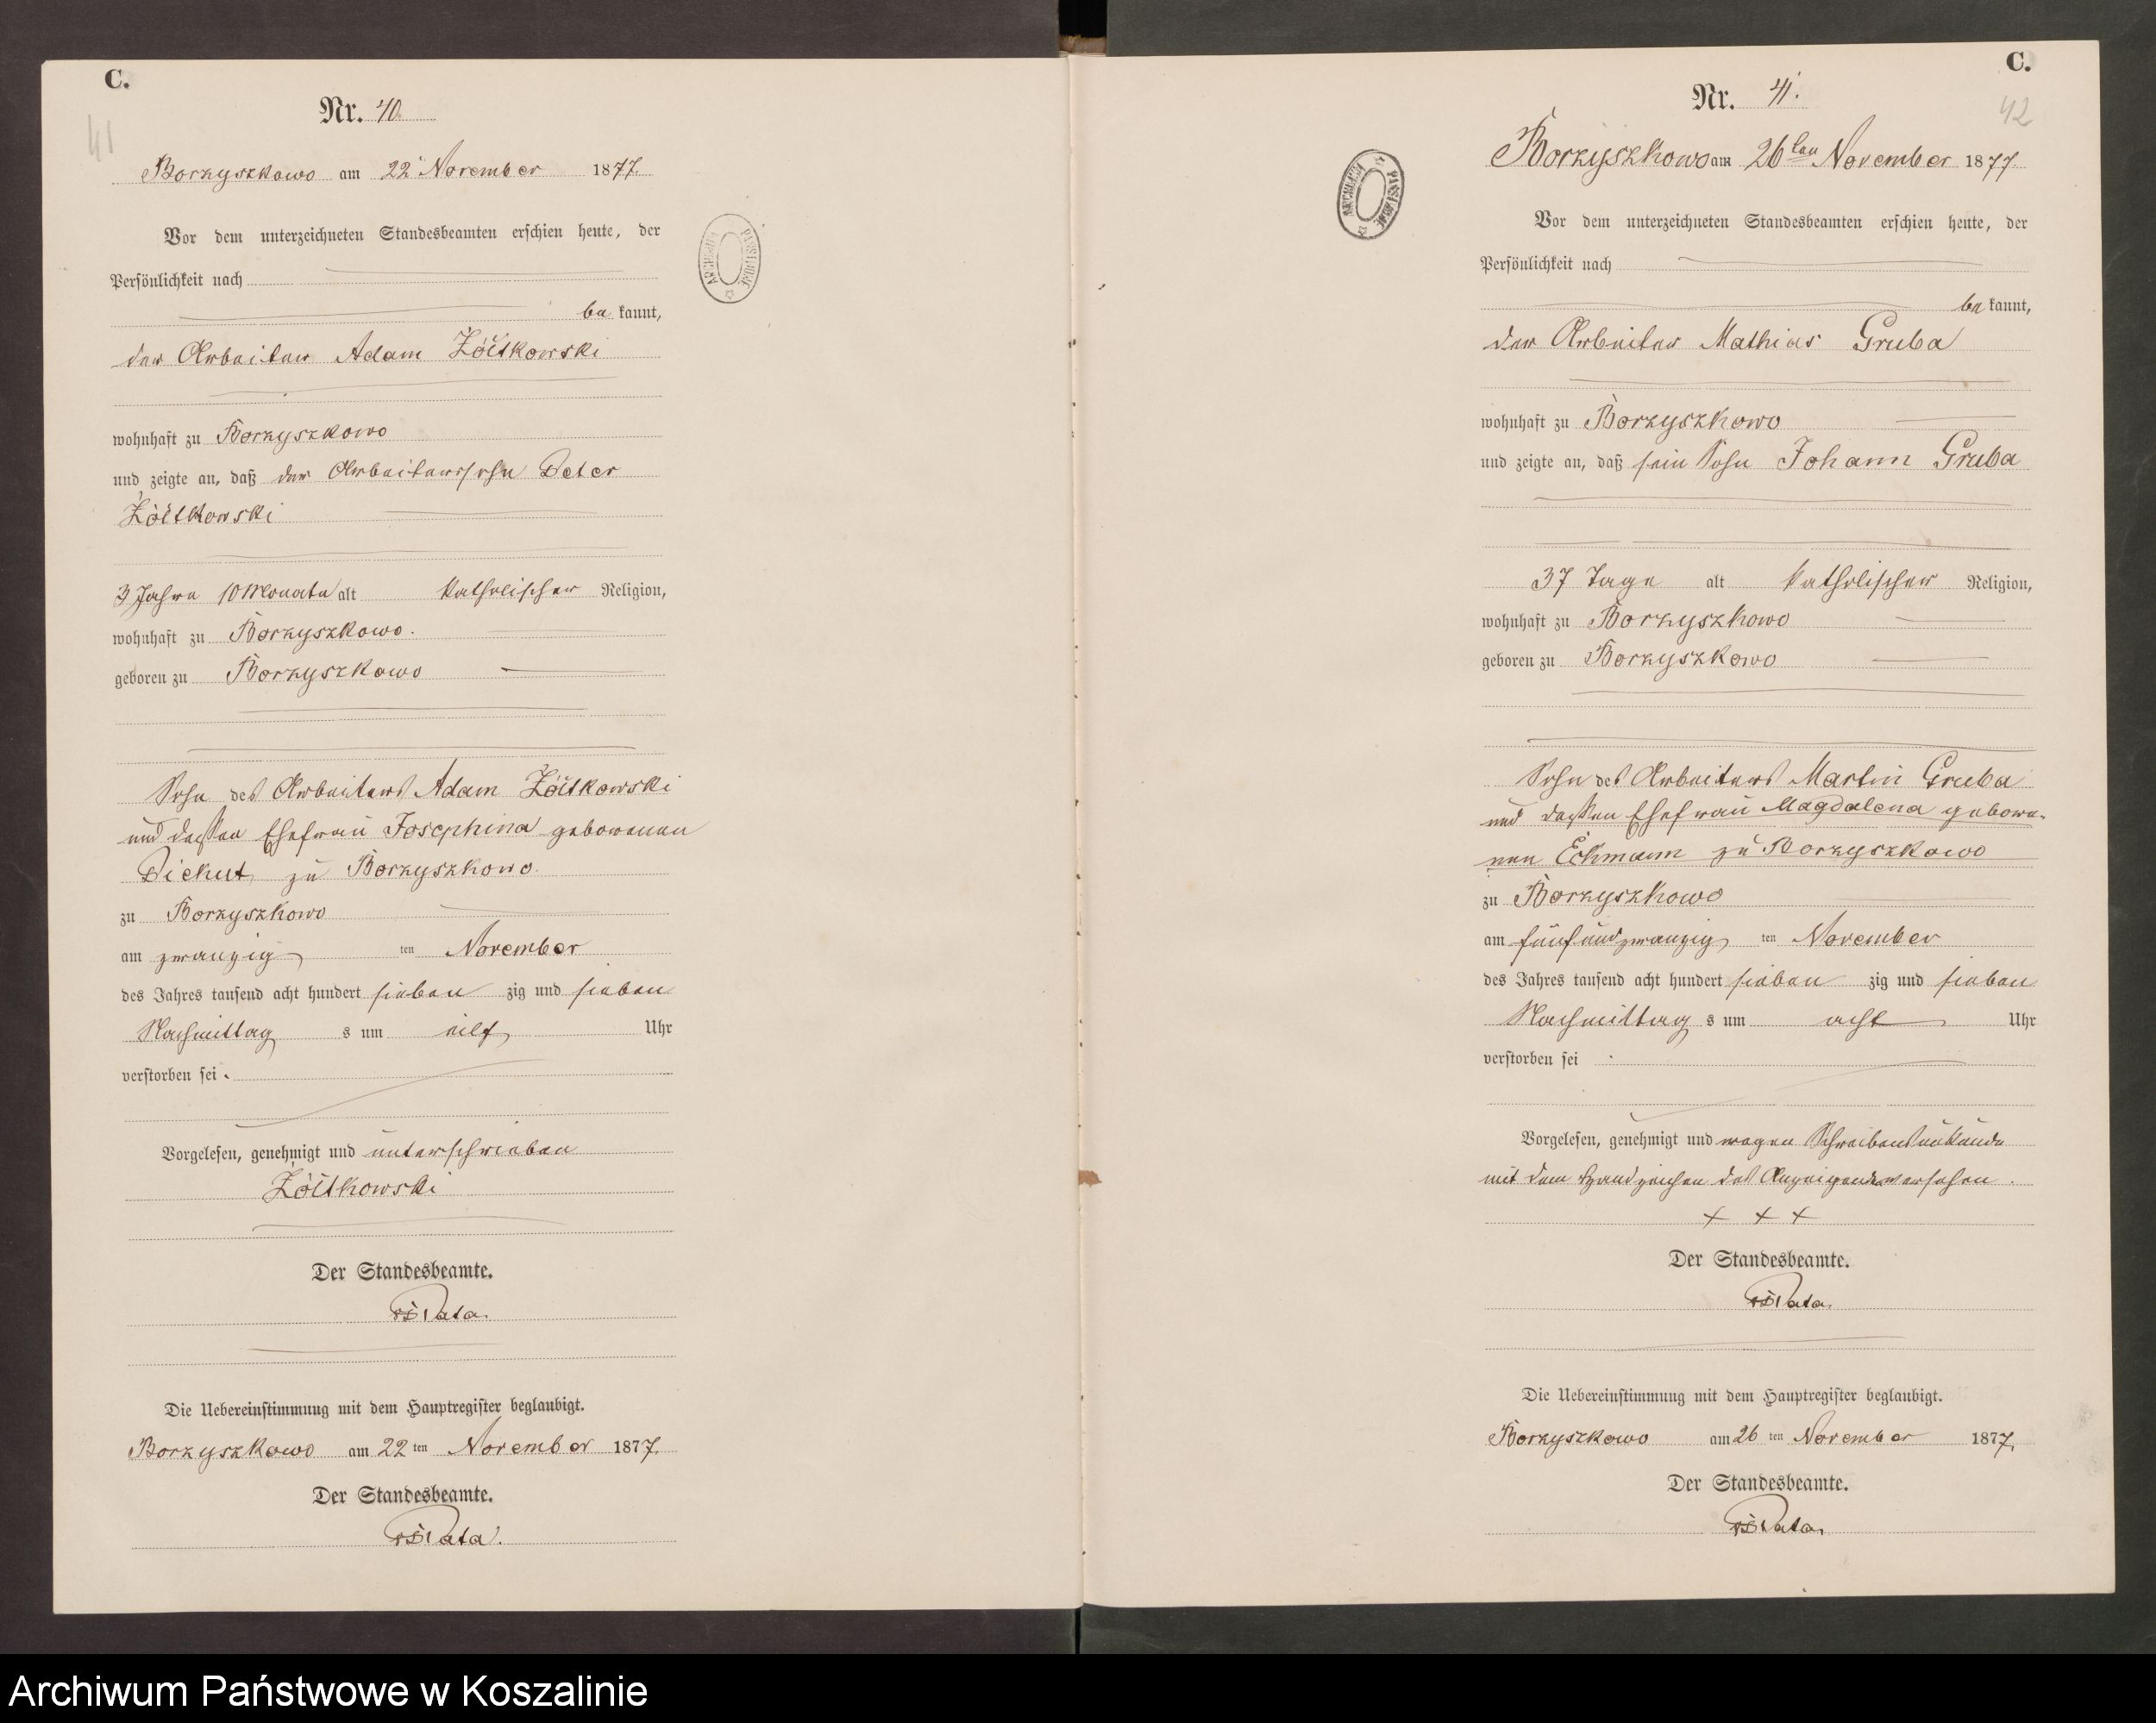 C.
41
Nr. 40.
Borzyszkowo am 22 November 1877.
Vor dem unterzeichneten Standesbeamten erschien heute, der
Persönlichkeit nach
be kannt,
der Arbeiter Adam Żółtkowski
wohnhaft zu Borzyszkowo
und zeigte an, daß der Arbeiterssohn Peter
Żółtkowski
3 Jahre 10 Monate alt katholischer Religion,
wohnhaft zu Borzyszkowo.
geboren zu Borzyszkowo
Sohn des Arbeiters Adam Żółtkowski
und dessen Ehefrau Josephina geborenen
zu Borzyszkowo.
zu Borzyszkowo
am zwanzig ten November
des Jahres tausend acht hundert sieben zig und sieben
Nachmittag s um eilf Uhr
verstorben sei.
Vorgelesen, genehmigt und unterschrieben
Żółtkowski
Der Standesbeamte.
Pata.
Die Uebereinstimmung mit dem Hauptregister beglaubigt.
Borzyszkowo am 22 ten November 1877.
Der Standesbeamte.
Pata.
ARCHIWUM PAŃSTWOWE
C.
42
Nr. 41.
Borzyszkowo am 26 ten November 1877
Vor dem unterzeichneten Standesbeamten erschien heute, der
Persönlichkeit nach
be kannt,
der Arbeiter Mathias Gruba
wohnhaft zu Borzyszkowo
und zeigte an, daß sein Sohn Johann Gruba
37 Tage alt katholischer Religion,
wohnhaft zu Borzyszkowo
geboren zu Borzyszkowo
Sohn des Arbeiters Martin Gruba
und dessen Ehefrau Magdalena gebore-
nen Eckmann zu Borzyszkowo
zu Borzyszkowo
am fünfundzwanzig ten November
des Jahres tausend acht hundert sieben zig und sieben
Nachmittag s um acht Uhr
verstorben sei
Vorgelesen, genehmigt und wegen Schreibensunkunde
mit dem Handzeichen des Anzeigenden versehen.
+ + +
Der Standesbeamte.
Pata.
Die Uebereinstimmung mit dem Hauptregister beglaubigt.
Borzyszkowo am 26 ten November 1877.
Der Standesbeamte.
Pata.
ARCHIWUM PAŃSTWOWE
Archiwum Państwowe w Koszalinie